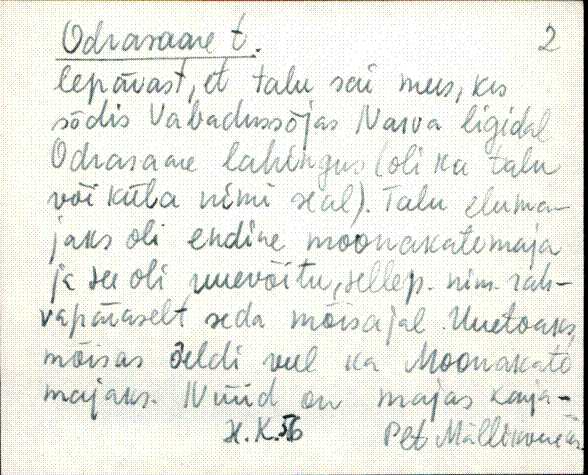 Odrasaare t. 2
lepärast, et talu sai mees, kes
sõdis Vabadussõjas Narva ligidal
Odrasaare lahingus (oli ka talu
või küla nimi seal). Talu eluma-
jaks oli endine moonakatemaja
ja see oli uuevõitu, sellep. nim. rah-
vapäraselt seda mõisajal Uuetoaks,
mõisas öeldi veel ka Moonakate
majaks. Nüüd on majas karja-
H. K. 56 Pet